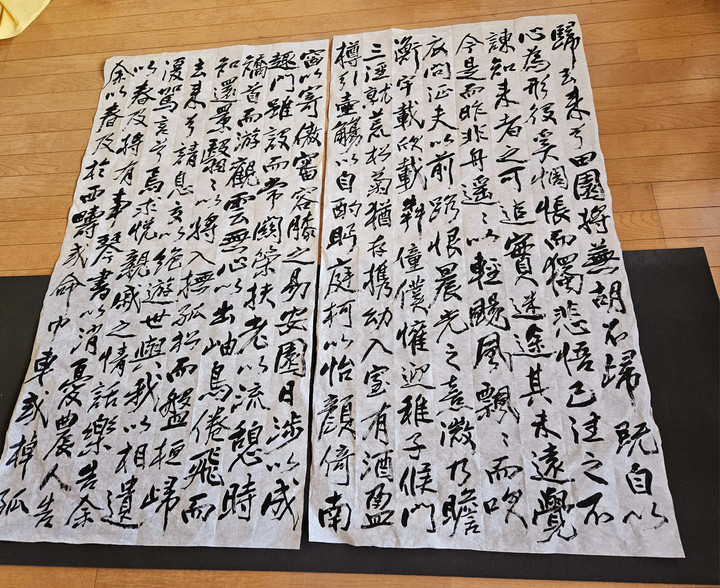 歸去来兮田園將蕪胡不歸既自以
心為形役奚惆悵而獨悲悟已往之不
諫知来者之可追實迷途其未遠覺
今是而昨非舟遥々以輕颺風飄々而吹
衣問征夫以前路恨晨光之熹微乃瞻
衡宇載欣載奔僮僕懽迎稚子候門
三逕就荒松菊猶存携幼入室有酒盈
樽引壺觴以自酌眄庭柯以怡顔倚南
窗以寄傲審容膝之易安園日涉以成
趣門雖設而常關策扶老以流憩時
矯首而游觀雲無心以出岫鳥倦飛而
知還景翳々以將入撫孤松而盤桓歸
去来兮請息交以絶遊世與我以相遺
復駕言兮焉求悦親戚之情話樂告余
以春及將有事琴書以消憂農人告
余以春及於西疇或命巾車或棹孤